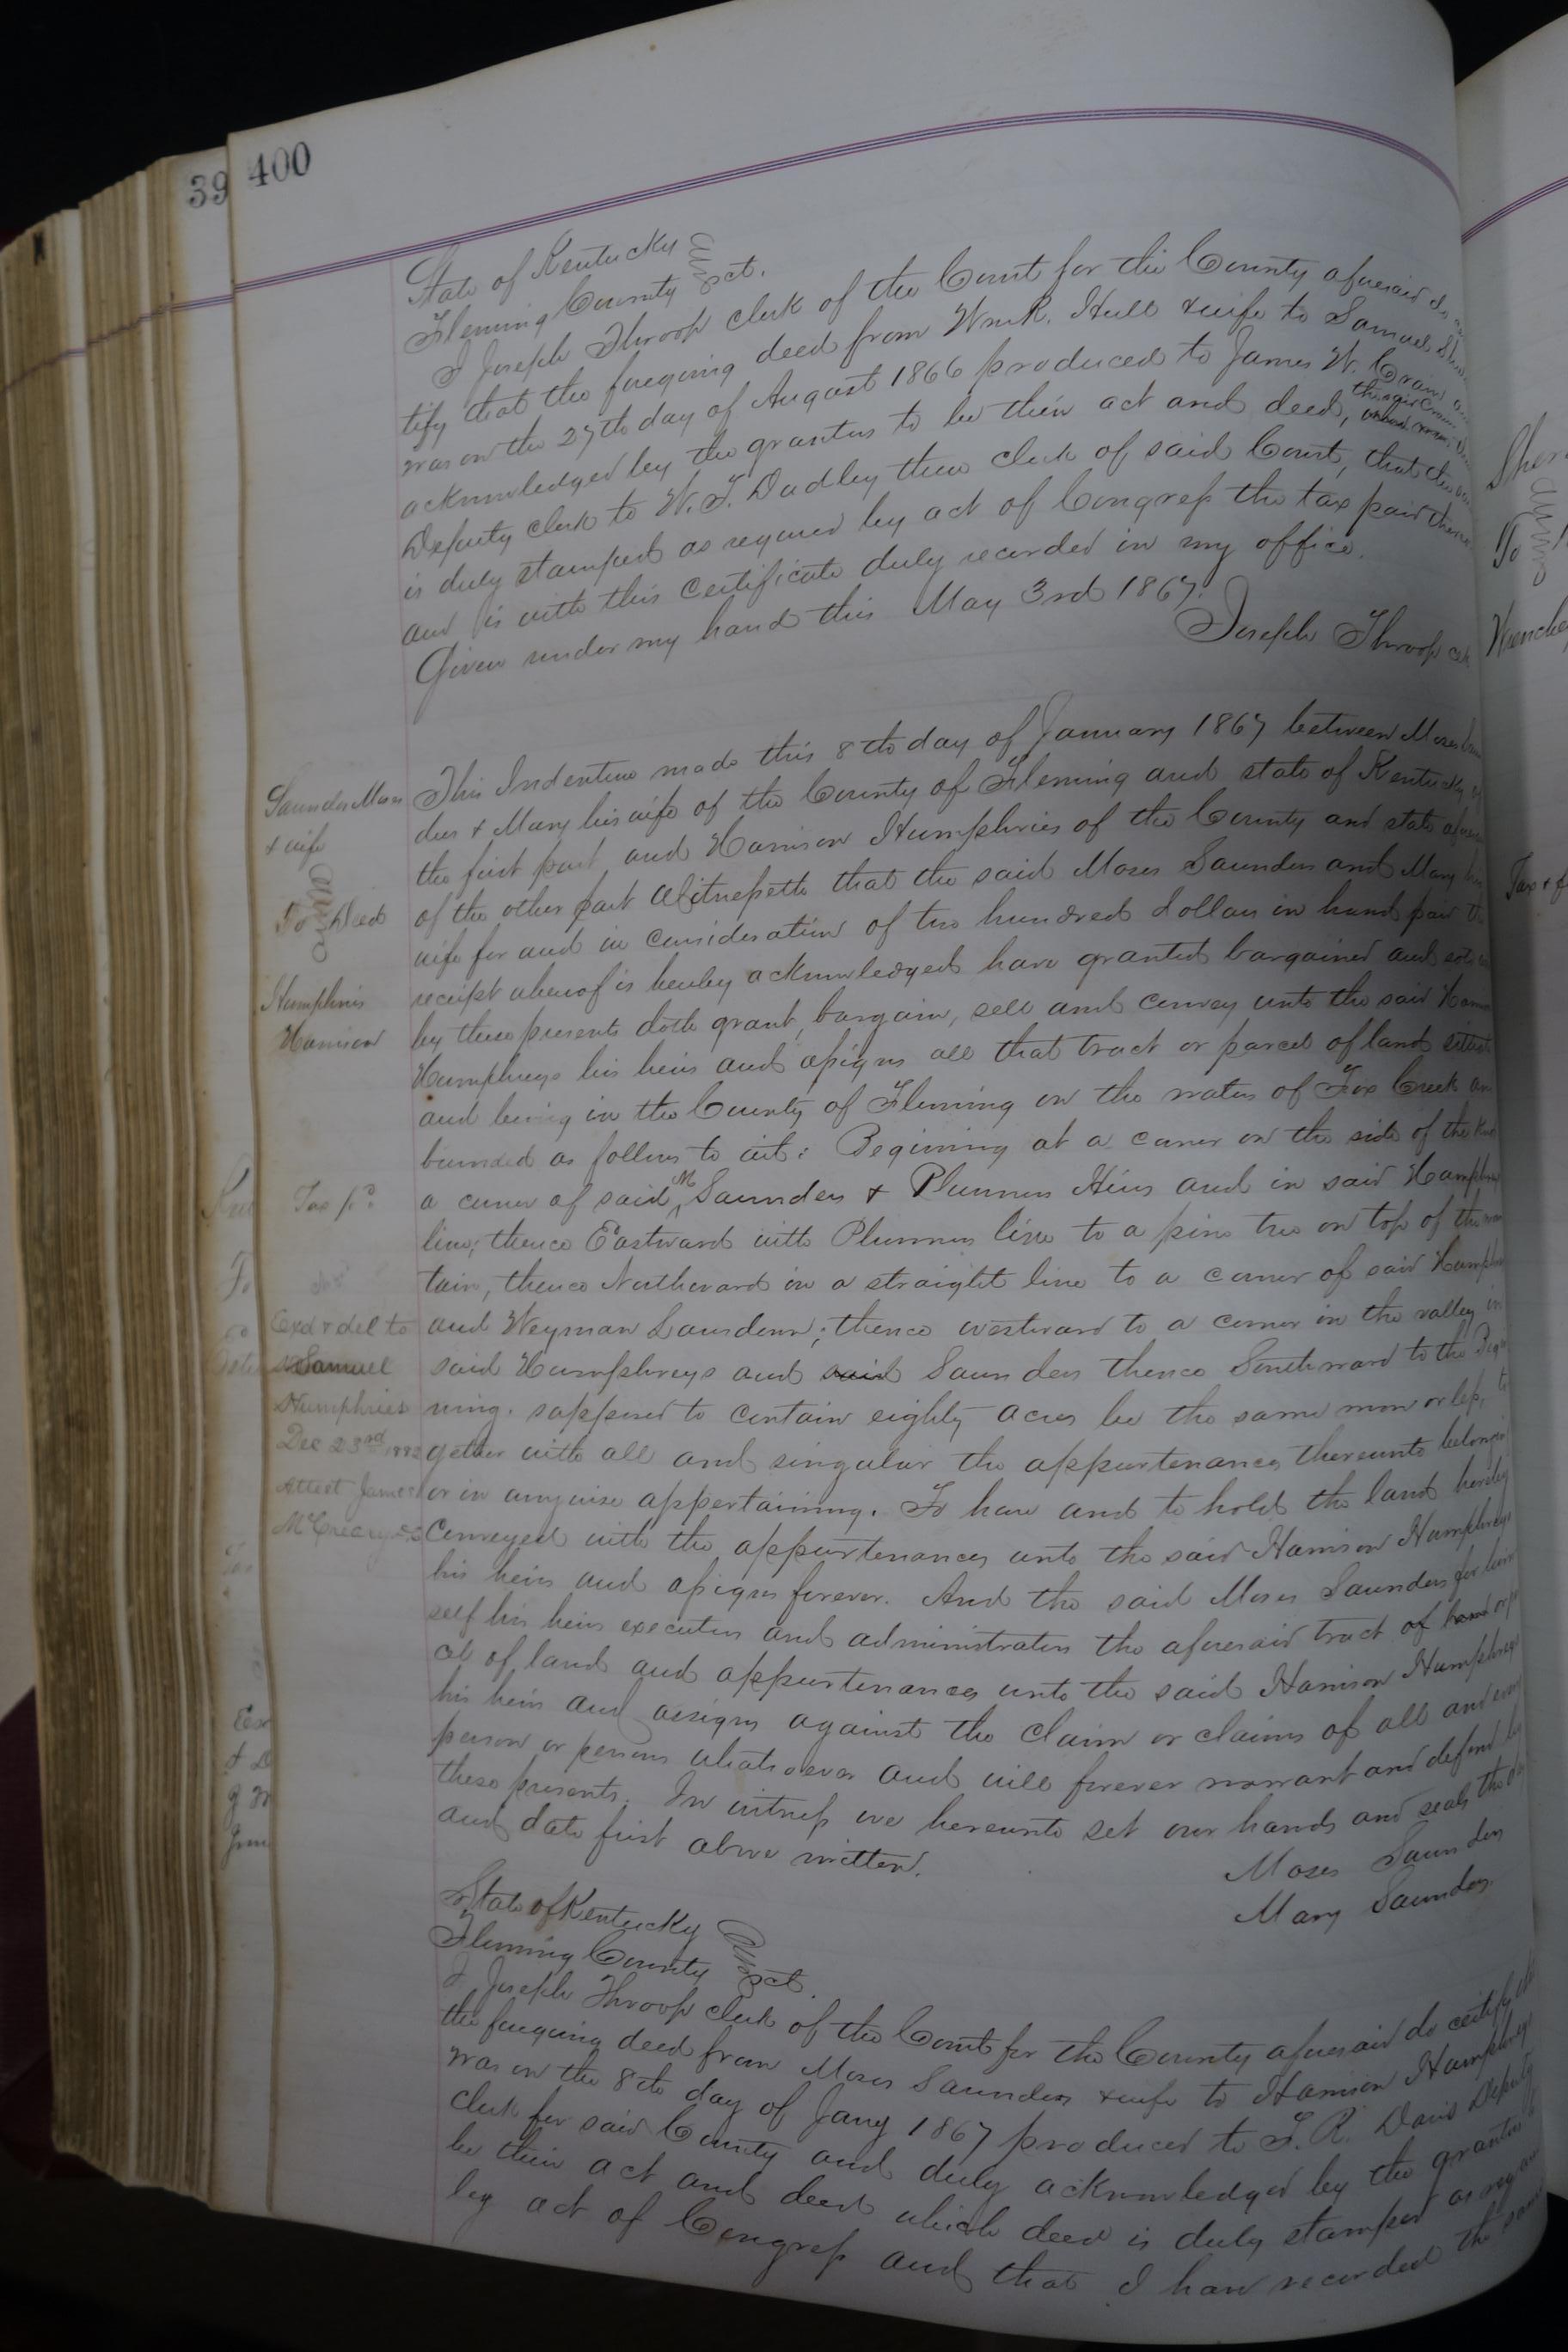 39
400
State of Kentucky
Fleming County sct.
I Joseph Throop clerk of the Court for the County aforesaid do
tify that the foregoing deed from Wm R. Hull & wife to Samuel
was on the 27th day of August 1866 produced to James W. Crain
acknowledged by the grantors to be their act and deed,
Deputy clerk to W. T. Dudley then clerk of said Court, that the
is duly stamped as required by act of Congress the tax paid
and is with this certificate duly recorded in my office.
Given under my hand this May 3rd 1867.
Joseph Throop
This Indenture made this 8th day of January 1867 between Moses
Saunders Moses
ders & Mary his wife of the County of Fleming and state of Kentucky
& wife
the first part and Harrison Humphries of the County and state
To Deed
of the other part Witnesseth that the said Moses Saunders and Mary
wife for and in consideration of two hundred dollars in hand paid
Humphries
receipt whereof is hereby acknowledged have granted bargained and
Harrison
by these presents doth grant, bargain, sell and convey unto the said
Humphreys his heirs and assigns all that tract or parcel of land
and being in the County of Fleming on the waters of Fox Creek
bounded as follows to wit: Begining at a corner on the side of the
Tax pd
a corner of said M Saunders & Plummers Heirs and in said
line; thence Eastward with Plummers line to a pine tree on top of the
tain, thence Northward in a straight line to a corner of said
Exd & del to
and Weyman Saunders; thence westward to a corner in the valley
Samuel
said Humphreys and said Saunders thence Southward to the
Humphries
ning. supposed to contain eighty acres be the same more or less, to
Dec 23rd
gether with all and singular the appurtenances thereunto
Attest James
or in anywise appertaining. To have and to hold the land hereby
McCreary
Conveyed with the appurtenances unto the said Harrison Humphreys
his heirs and assigns forever. And the said Moses Saunders for
self his heirs executors and administrators the aforesaid tract of
cel of land and appurtenances unto the said Harrison Humphreys
his heirs and assigns against the claim or claims of all and
person or persons whatsoever and will forever warrant and defend by
these presents. In witness we hereunto set our hands and seals the
and date first above written.
Moses Saunders
Mary Saunders
State of Kentucky
Fleming County sct.
I Joseph Throop clerk of the Court for the County aforesaid do certify
the foregoing deed from Moses Saunders & wife to Harrison Humphreys
was on the 8th day of Jany 1867 produced to T. R. Davis Deputy
Clerk for said County and duly acknowledged by the grantors
be their act and deed which deed is duly stamped as
by act of Congress and that I have recorded the